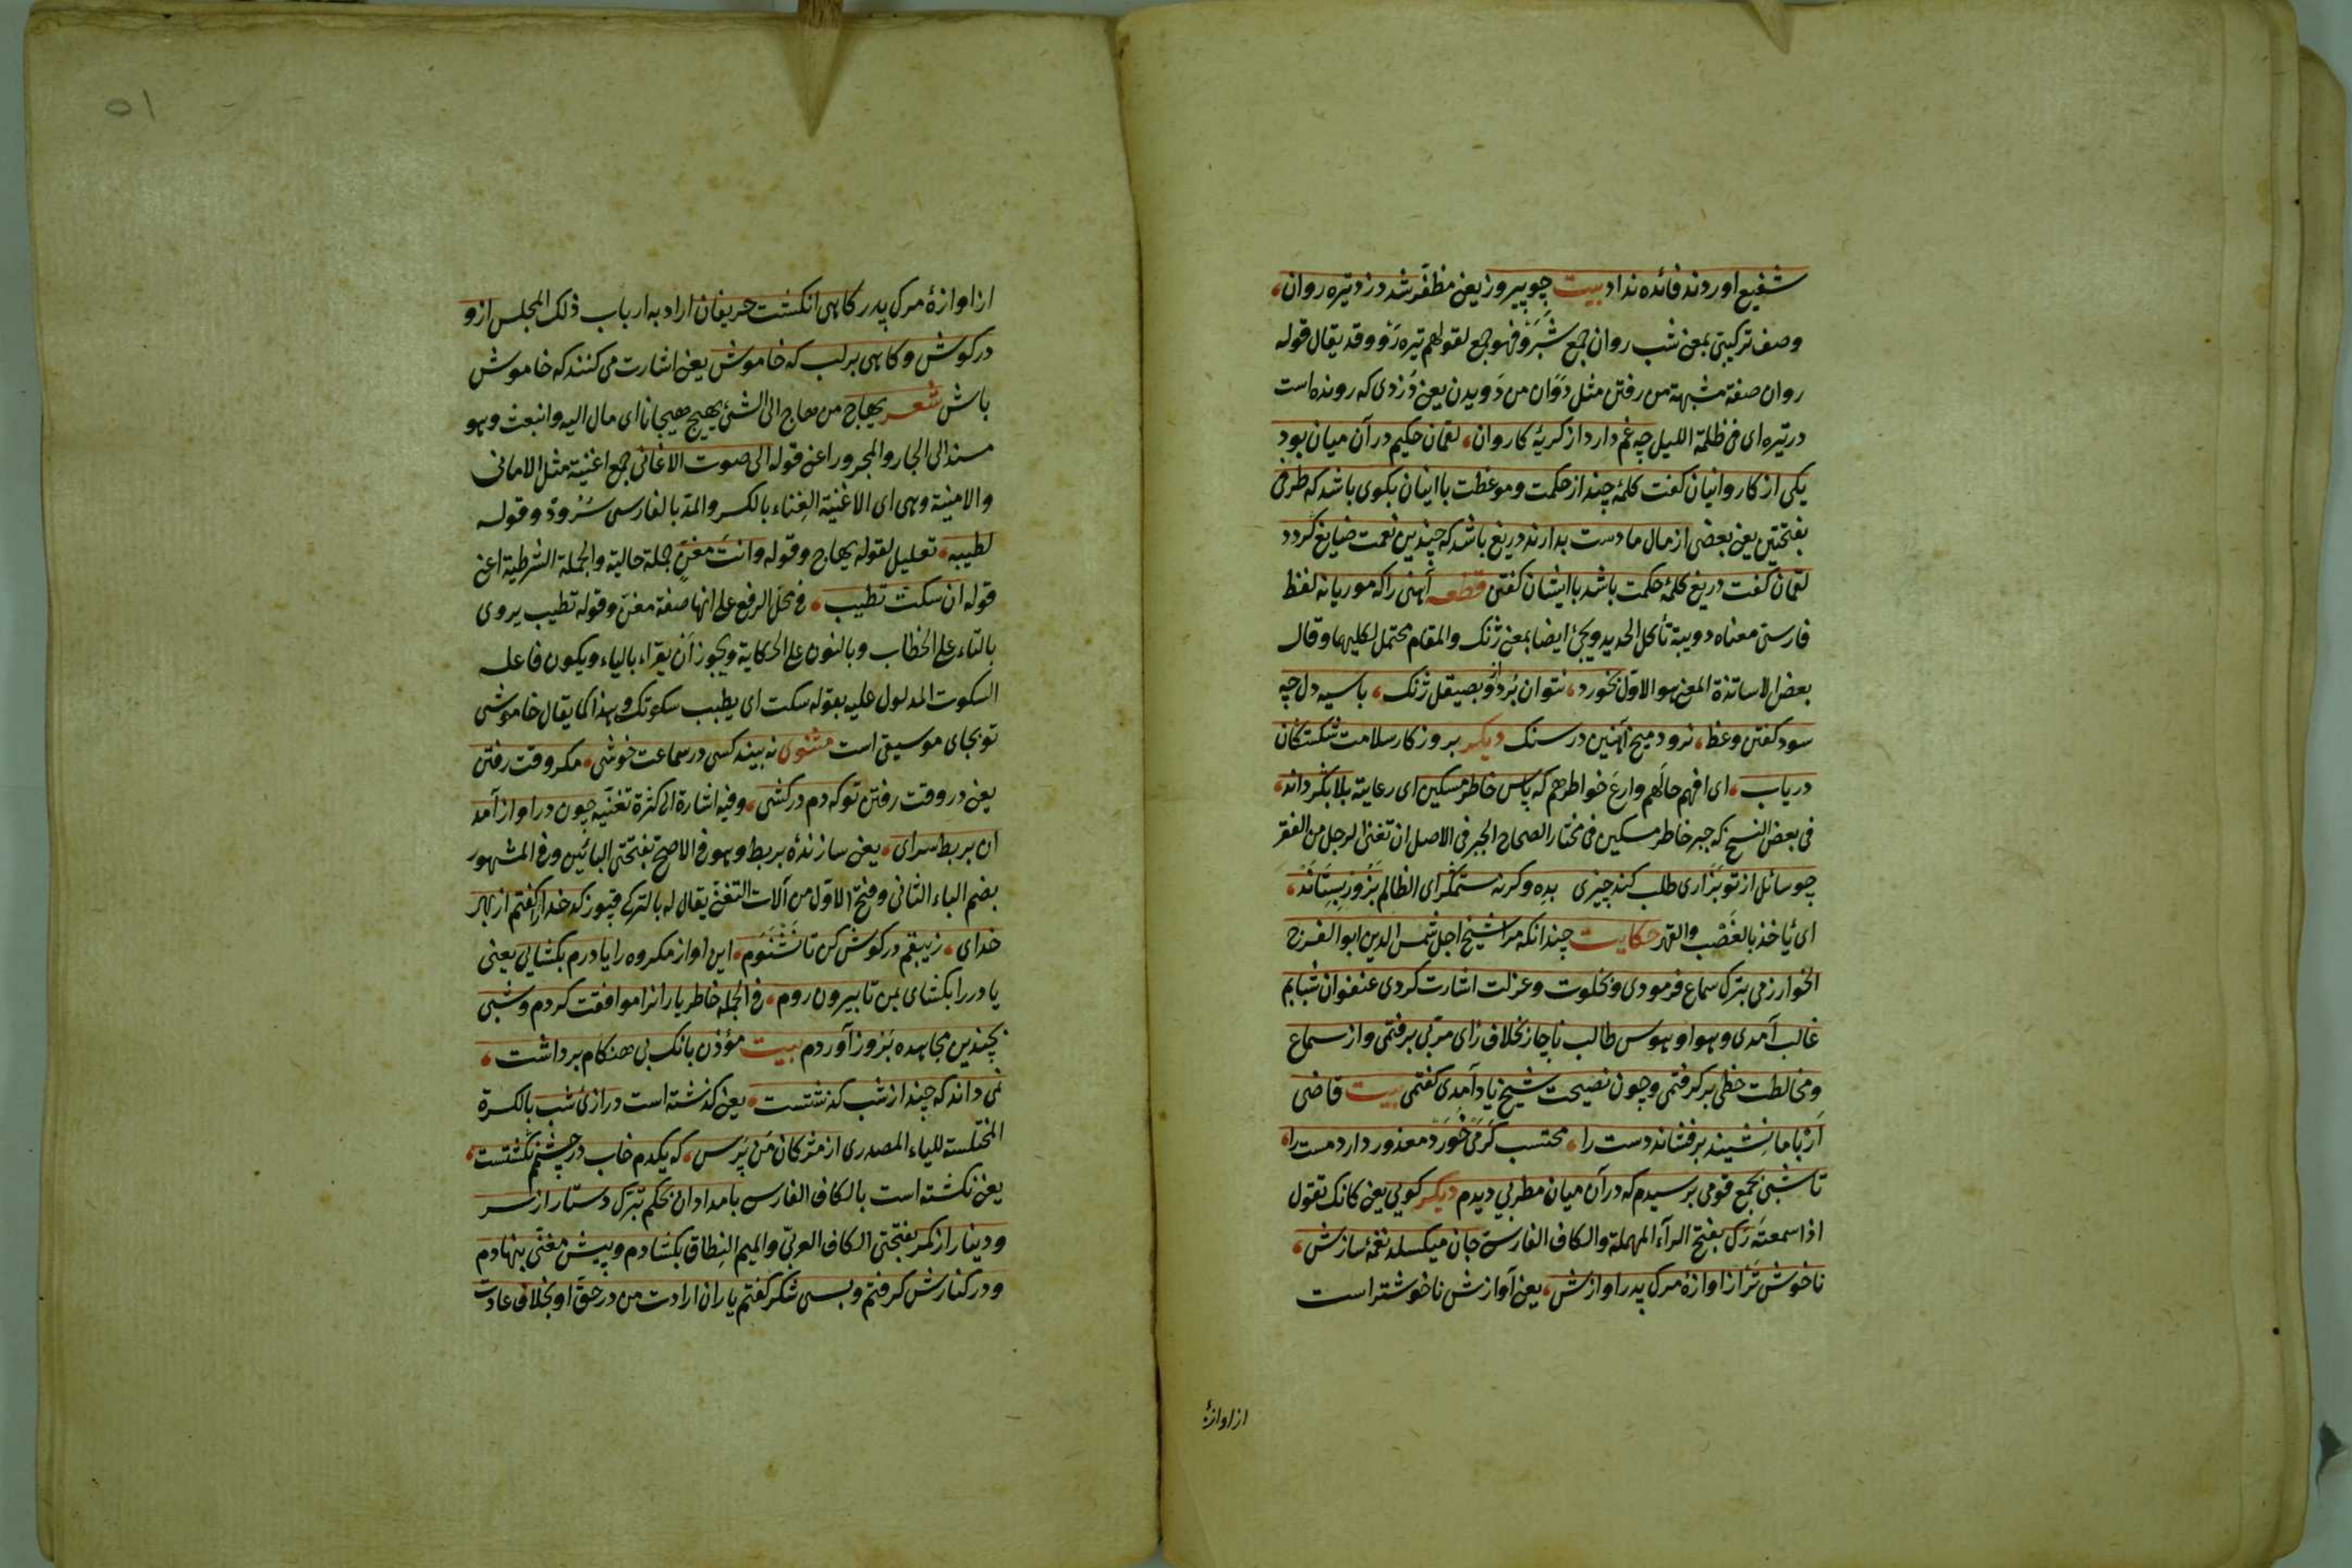 شفیع اوردند فائده نداد بیت چو پیروز یعنی مظفّر شد دزد تیره روان
وصف ترکیبی بمعنی شب روان جمع شبرو فهو جمع لقولهم تیره رو وقد یقال قوله
روان صفة مشبهة من رفتن مثل دوان من دویدن یعنی دزدی که رونده است
در تیره ای فی ظلمة اللیل چه غم دارد از کریهٔ کاروان لقمان حکیم در آن میان بود
یکی از کاروانیان کفت کلمهٔ چند از حکمت و موعظت با اینان بکوی باشد که طرفی
بفتحتین یعنی بعضی از مال ما دست بدارند دریغ باشد که چندین نعمت ضایع کردد
لقمان کفت دریغ کلمهٔ حکمت باشد با ایشان کفتن قطعه آهنی را که موریانه لفظ
فارسی معناه دویبة تأکل الحدید ویجئ ایضا بمعنی ژنک والمقام محتمل لکلیهما وقال
بعض الاساتذة المعنی هو الاوّل بخورد نتوان برد ازو بصیقل ژنک با سیه دل چه
سود کفتن وعظ نرود میخ آهنین در سنک دیکر بروزکار سلامت شکستکان
دریاب ای افهم حالهم وارع خواطرهم که پاس خاطر مسکین ای رعایته بلا بکرداند
فی بعض النسخ که جبر خاطر مسکین فی مختار الصحاح الجبر فی الاصل ان تغنی الرجل من الفقر
چو سائل از تو بزاری طلب کند چیزی بده وکرنه ستمکر ای الظالم بزور بستاند
ای یأخذ بالغصب والقهر حکایت چندانکه مرا شیخ اجل شمس الدین ابو الفرج
الخوارزمی بترک سماع فرمودی و بخلوت و عزلت اشارت کردی عنفوان شبابم
غالب آمدی و هوا و هوس طالب ناچار بخلاف رای مربّی برفتمی و از سماع
و مخالطت حظی برکرفتمی و چون نصیحت شیخ یاد آمدی کفتمی بیت قاضی
ار با ما نشیند برفشاند دست را محتسب کر می خورد معذور دارد مست را
تا شبی بجمع قومی برسیدم که در آن میان مطربی دیدم دیکر کویی یعنی کانک تقول
اذا سمعته رک بفتح الرآء المهملة والکاف الفارسی جان میکسلد نغمهٔ سازش
ناخوش تر از اوازهٔ مرک پدر اوازش یعنی آوازش ناخوشتر است
از اوازهٔ
٥١
از اوازهٔ مرک پدر کاهی انکشت حریفان اراد به ارباب ذلک المجلس ازو
در کوش و کاهی بر لب که خاموش یعنی اشارت می کنند که خاموش
باش شعر یهاج من هاج الی الشئ یهیج هیجانا ای مال الیه وانبعث وهو
مسند الی الجار والمجرور اعنی قوله الی صوت الاغانی جمع اغنیة مثل الامانی
والامنیة وهی ای الاغنیة الغناء بالکسر والمد بالفارسی سرود وقوله
لطیبه تعلیل لقوله یهاج وقوله وانت مغنّ جملة حالیة والجملة الشرطیة اعنی
قوله ان سکتّ تطیب فی محل الرفع علی انها صفة مغنّ وقوله تطیب یروی
بالتاء علی الخطاب وبالنون علی الحکایة ویجوز أن یقراء بالیاء ویکون فاعله
السکوت المدلول علیه بقوله سکت ای یطیب سکوتک وهذا کما یقال خاموشی
تو بجای موسیقی است مثنوی نه بیند کسی در سماعت خوشی مکر وقت رفتن
یعنی در وقت رفتن تو که دم در کشی وفیه اشارة الی کثرة تغنّیه چون در اواز آمد
ان بربط سرای یعنی سازندهٔ بربط وهو فی الاصح بفتحتی البائین وفی المشهور
بضم الباء الثانی وفتح الاوّل من آلات التغنّی یقال له بالترکی قپوز کدخدا را کفتم از بهر
خدای زیبقم در کوش کن تا نشنوم این اواز مکروه را یا درم بکشایی یعنی
یا در را بکشای بمن تا بیرون روم فی الجمله خاطر یارانرا موافقت کردم و شبی
بچندین مجاهده بروز آوردم بیت مؤذن بانک بی هنکام برداشت
نمی داند که چند از شب کذشتست یعنی کذشته است درازی شب بالکسرة
المختلسة للیاء المصدری از مژکان من پرس که یکدم خاب در چشمم نکشتست
یعنی نکشته است بالکاف الفارسی بامدادان بحکم تبرک دستار از سر
و دینار از کمر بفتحتی الکاف العربیّ والمیم النطاق بکشادم و پیش مغنّی بنهادم
و در کنارش کرفتم و بسی شکر کفتم یاران ارادت من در حقّ او بخلاف عادت